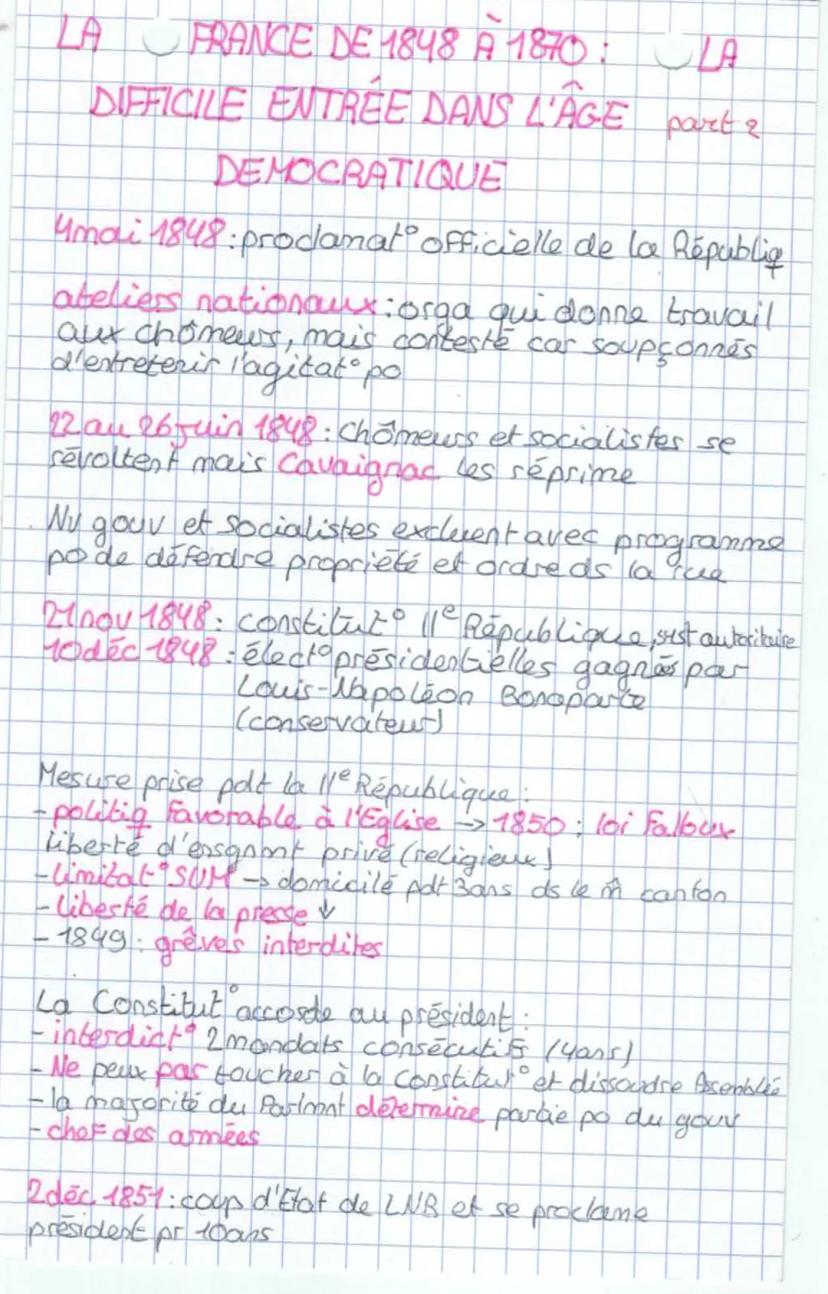 LA FRANCE DE 1848 À 1870 : LA
DIFFICILE ENTRÉE DANS L'ÂGE part 2
DEMOCRATIQUE
4 mai 1848 : proclamat° officielle de la Républiq
ateliers nationaux : orga qui donne travail
aux chômeurs, mais contesté car soupçonnés
d'entretenir l'agitat° po
22 au 26 juin 1848 : Chômeurs et socialistes se
révoltent mais Cavaignac les réprime
Nv gouv et socialistes excluent avec programme
po de défendre propriété et ordre ds la rue
21 nov 1848 : constitut° IIe République, syst autoritaire
10 déc 1848 : élect° présidentielles gagnés par
Louis-Napoléon Bonaparte
(conservateur)
Mesure prise pdt la IIe République :
- politiq favorable à l'Eglise → 1850 : loi Falloux
liberté d'ensgnmt privé (religieux)
- limitat° SUM → domicilé pdt 3ans ds le m̂ canton
- liberté de la presse ↓
- 1849 : grêves interdites
La Constitut° accorde au président :
- interdict° 2 mandats consécutifs (4ans)
- Ne peux pas toucher à la Constitut° et dissoudre Assemblée
- la majorité du Parlmnt détermine partie po du gouv
- chef des armées
2 déc 1851 : coup d'Etat de LNB et se proclame
président pr 10ans